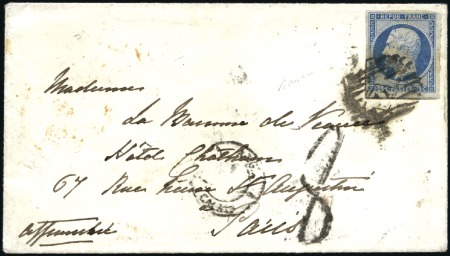 REPUB. FRANC.
Madame
La Baronne de
Hôtel Chatham
67 Rue Neuve St Augustin
affranchie
Paris
8